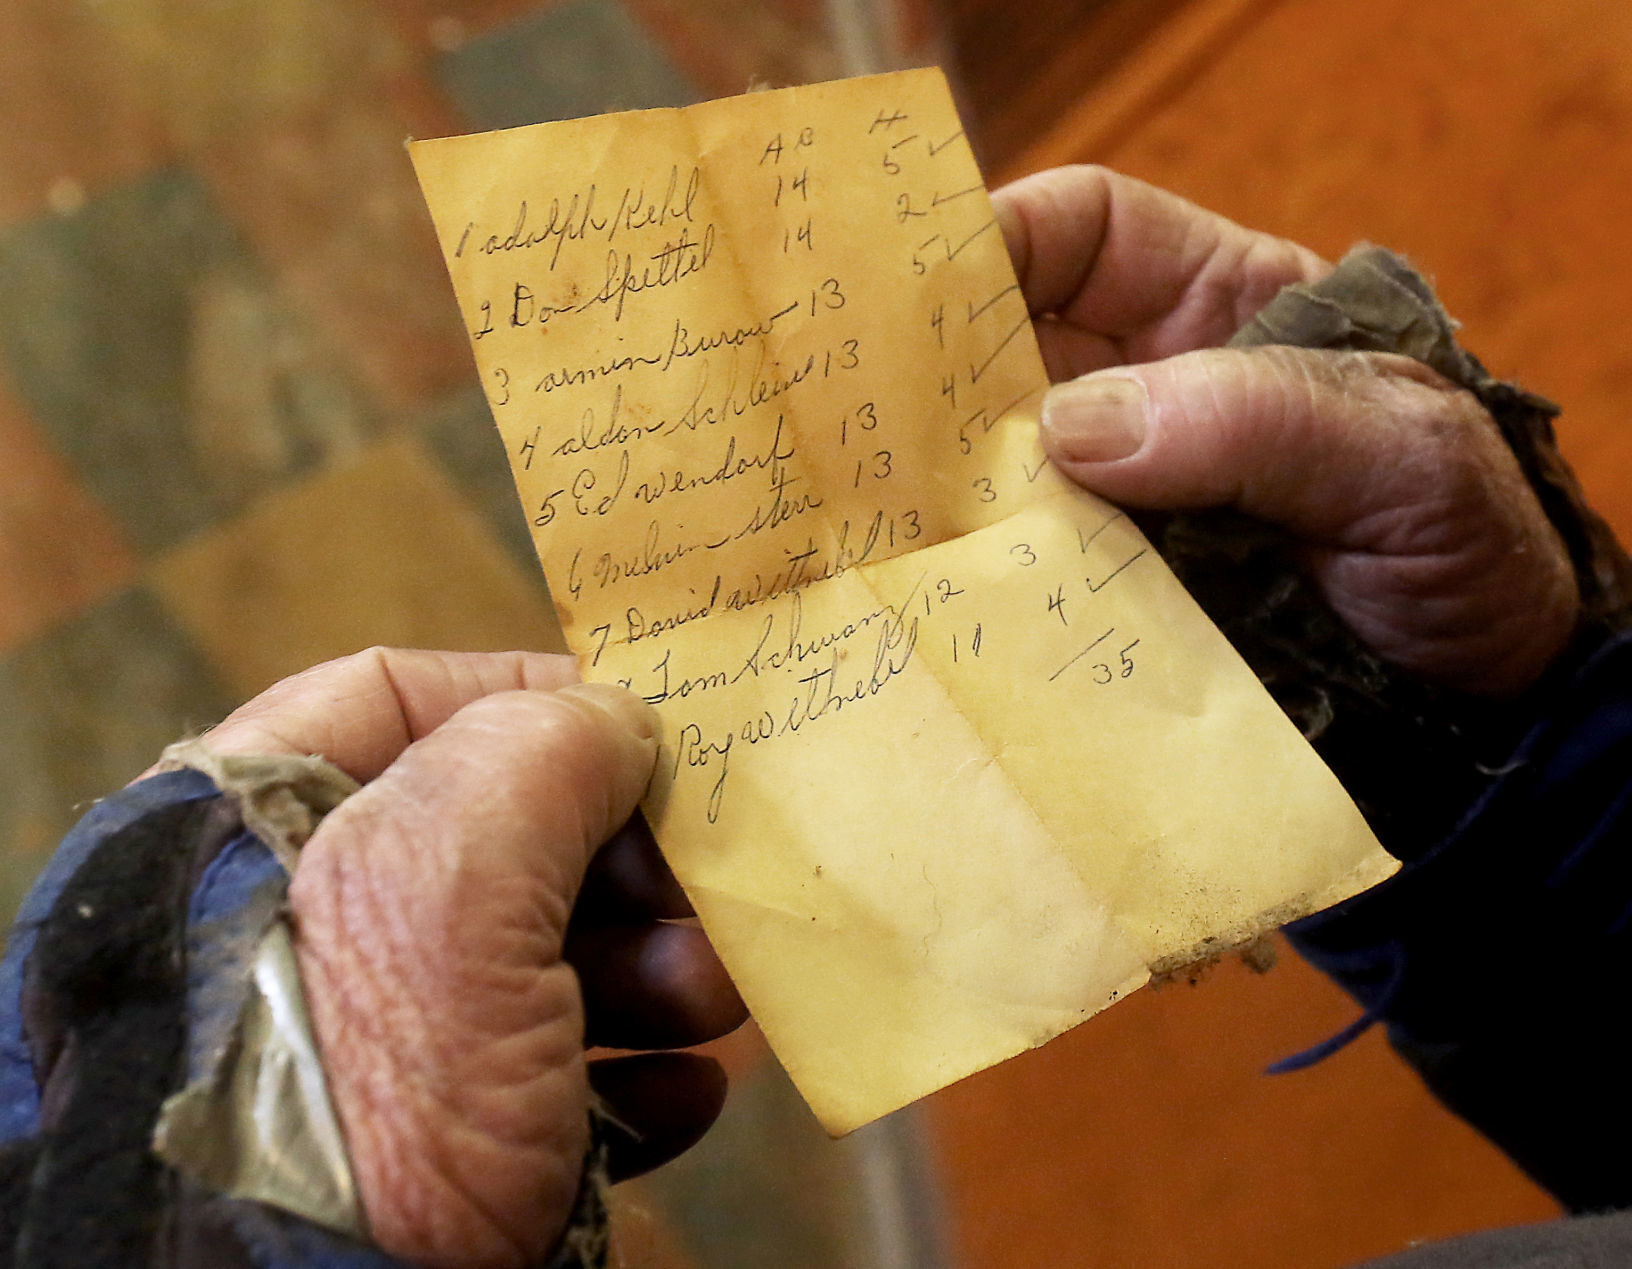 AB H
1 adolph Kehl 14 5 ✓
2 Don Spittel 14 2 ✓
3 armin Burow 13 5 ✓
4 aldon Schleine 13 4 ✓
5 Ed wendorf 13 4 ✓
6 melvin sterr 13 5 ✓
7 David wittnebel 13 3 ✓
Tom Schwanz 12 3 ✓
Roy wittnebel 11 4 ✓
35